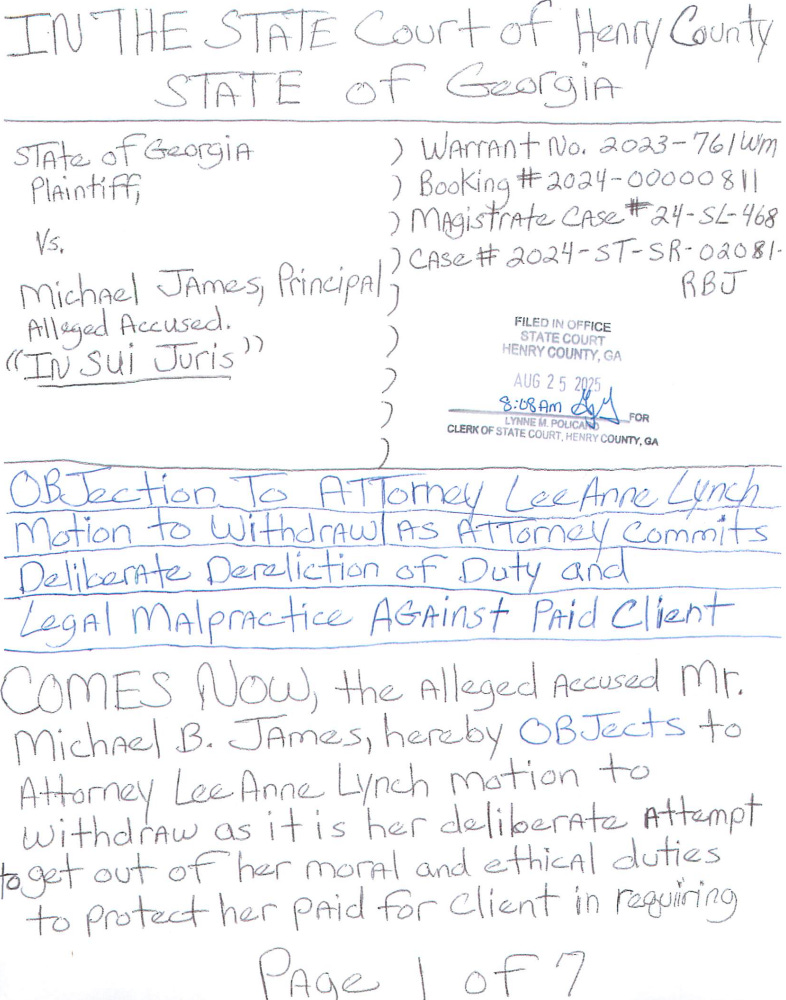 IN THE STATE Court of Henry County
STATE of Georgia
State of Georgia
Plaintiff,
Vs.
Michael James, Principal,
Alleged Accused.
"In Sui Juris"
) Warrant No. 2023-761WM
) Booking # 2024-00000811
) Magistrate Case # 24-SL-468
) Case # 2024-ST-SR-02081-
RBJ
)
)
)
)
)
FILED IN OFFICE
STATE COURT
HENRY COUNTY, GA
AUG 25 2025
8:08AM
FOR
LYNNE M. POLICANO
CLERK OF STATE COURT, HENRY COUNTY, GA
OBJection To ATTorney LeeAnne Lynch
Motion to Withdraw As ATTorney Commits
Deliberate Dereliction of Duty and
Legal Malpractice Against Paid Client
COMES NOW, the Alleged Accused Mr.
Michael B. James, hereby OBJects to
Attorney LeeAnne Lynch motion to
withdraw as it is her deliberate Attempt
to get out of her moral and ethical duties
to protect her paid for client in requiring
Page 1 of 7